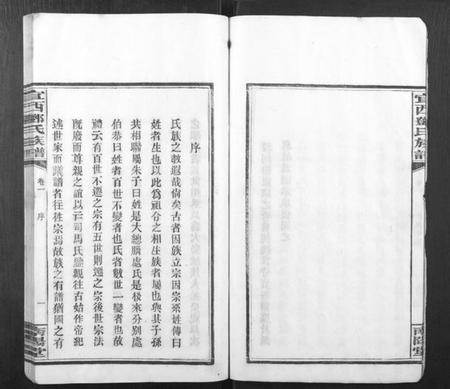 宜西鄧氏族譜
南陽堂
序
氏族之教遐哉尙矣古者因族立宗因宗系姓傳曰
姓者生也以此爲祖分之相生族者屬也與其子孫
共相聯屬朱子曰姓是大總腦處氏是後來分別處
伯恭曰姓者百世不變者也氏者數世一變者也故
禮云有百世不遷之宗有五世則遷之宗後世宗法
旣廢而尊親之誼以云司馬氏往古始作帝紀
述世家而譜者往往宗焉故族之有譜猶國之有
宜西鄧氏族譜
卷一
序
一
南陽堂